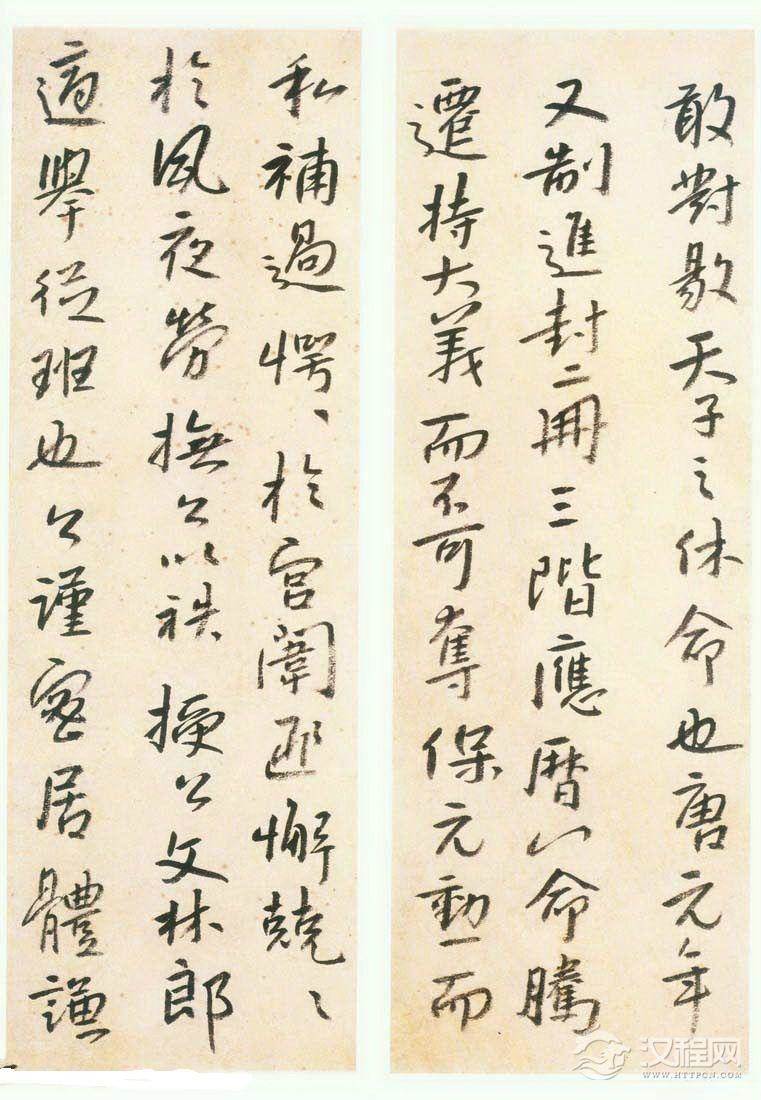 敢對敭天子之休命也唐元年
又制進封二冊三階應曆八命騰
遷持大義而不可奪保元勳一而
私補過愕〻於宮闈匪懈兢〻
於夙夜勞撫公以袟授公文林郎
適舉從班也公謹密居體謙
汉程网
WWW.HTTPCN.COM